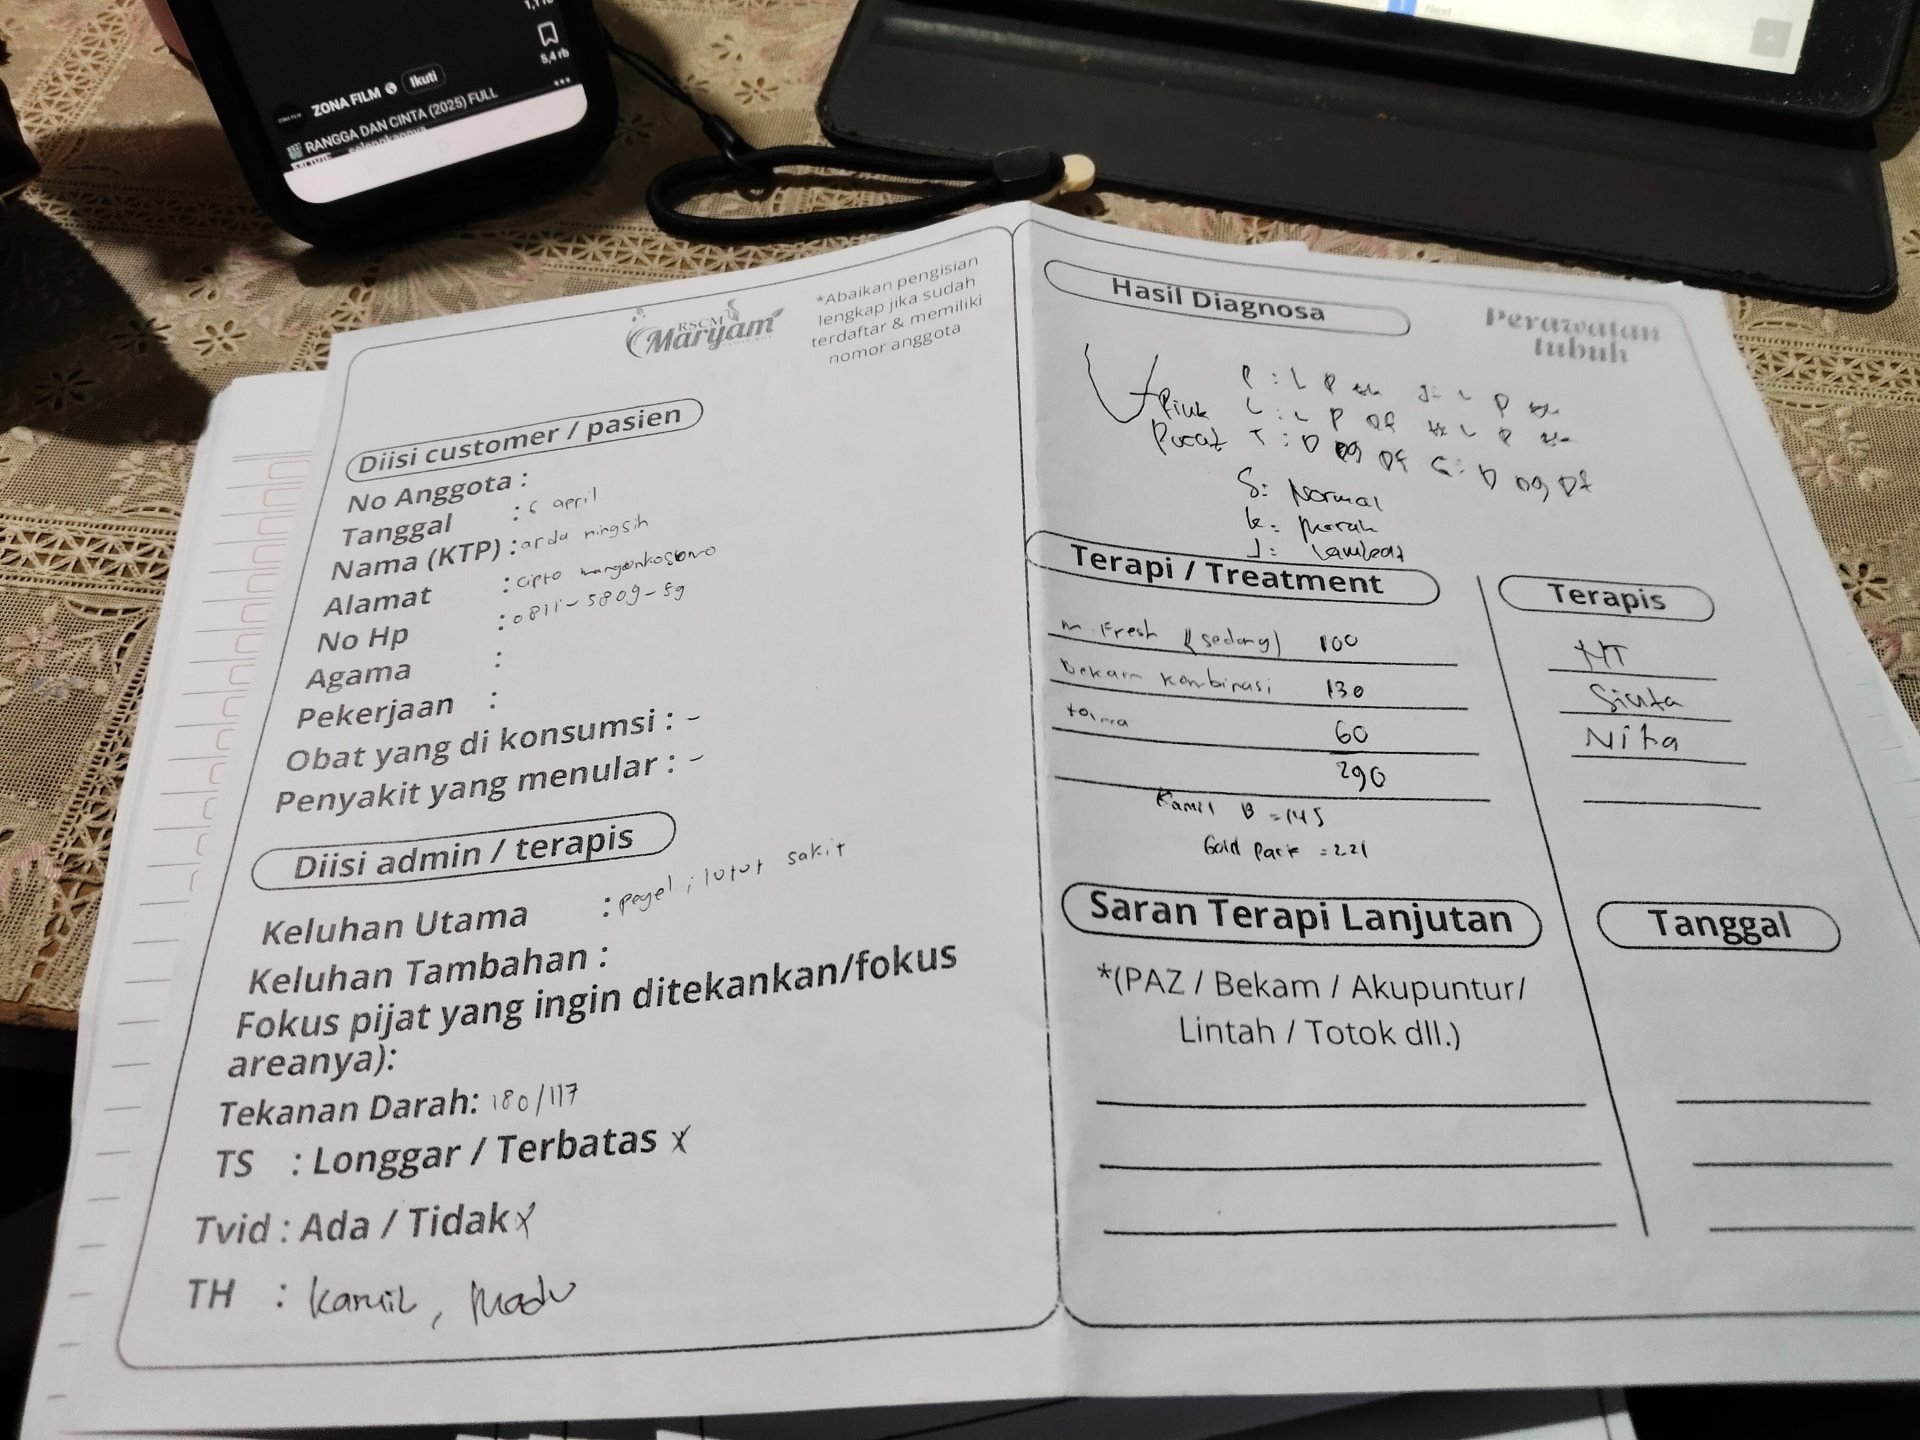 ZONA FILM Ikuti
5,4 rb
RANGGA DAN CINTA (2025) FULL
Next
RSCM
Maryam
*Abaikan pengisian
lengkap jika sudah
terdaftar & memiliki
nomor anggota
Diisi customer / pasien
No Anggota :
Tanggal : 6 april
Nama (KTP) : arda ningsih
Alamat : cipto
No Hp : 0811-5809-59
Agama :
Pekerjaan :
Obat yang di konsumsi : -
Penyakit yang menular : -
Diisi admin / terapis
Keluhan Utama : pegel, lutut sakit
Keluhan Tambahan :
Fokus pijat yang ingin ditekankan/fokus
areanya):
Tekanan Darah: 180/117
TS : Longgar / Terbatas x
Tvid : Ada / Tidak x
TH : Kamil, Madu
Hasil Diagnosa
Perawatan
tubuh
Pink
Pucat
S: Normal
k: Merah
J: Lambat
Terapi / Treatment
m. Fresh (sedang) 100
bekam kombinasi 130
60
290
Kamil B = 145
Gold Park = 221
Terapis
NT
Sinta
Nita
Saran Terapi Lanjutan
*(PAZ / Bekam / Akupuntur/
Lintah / Totok dll.)
Tanggal